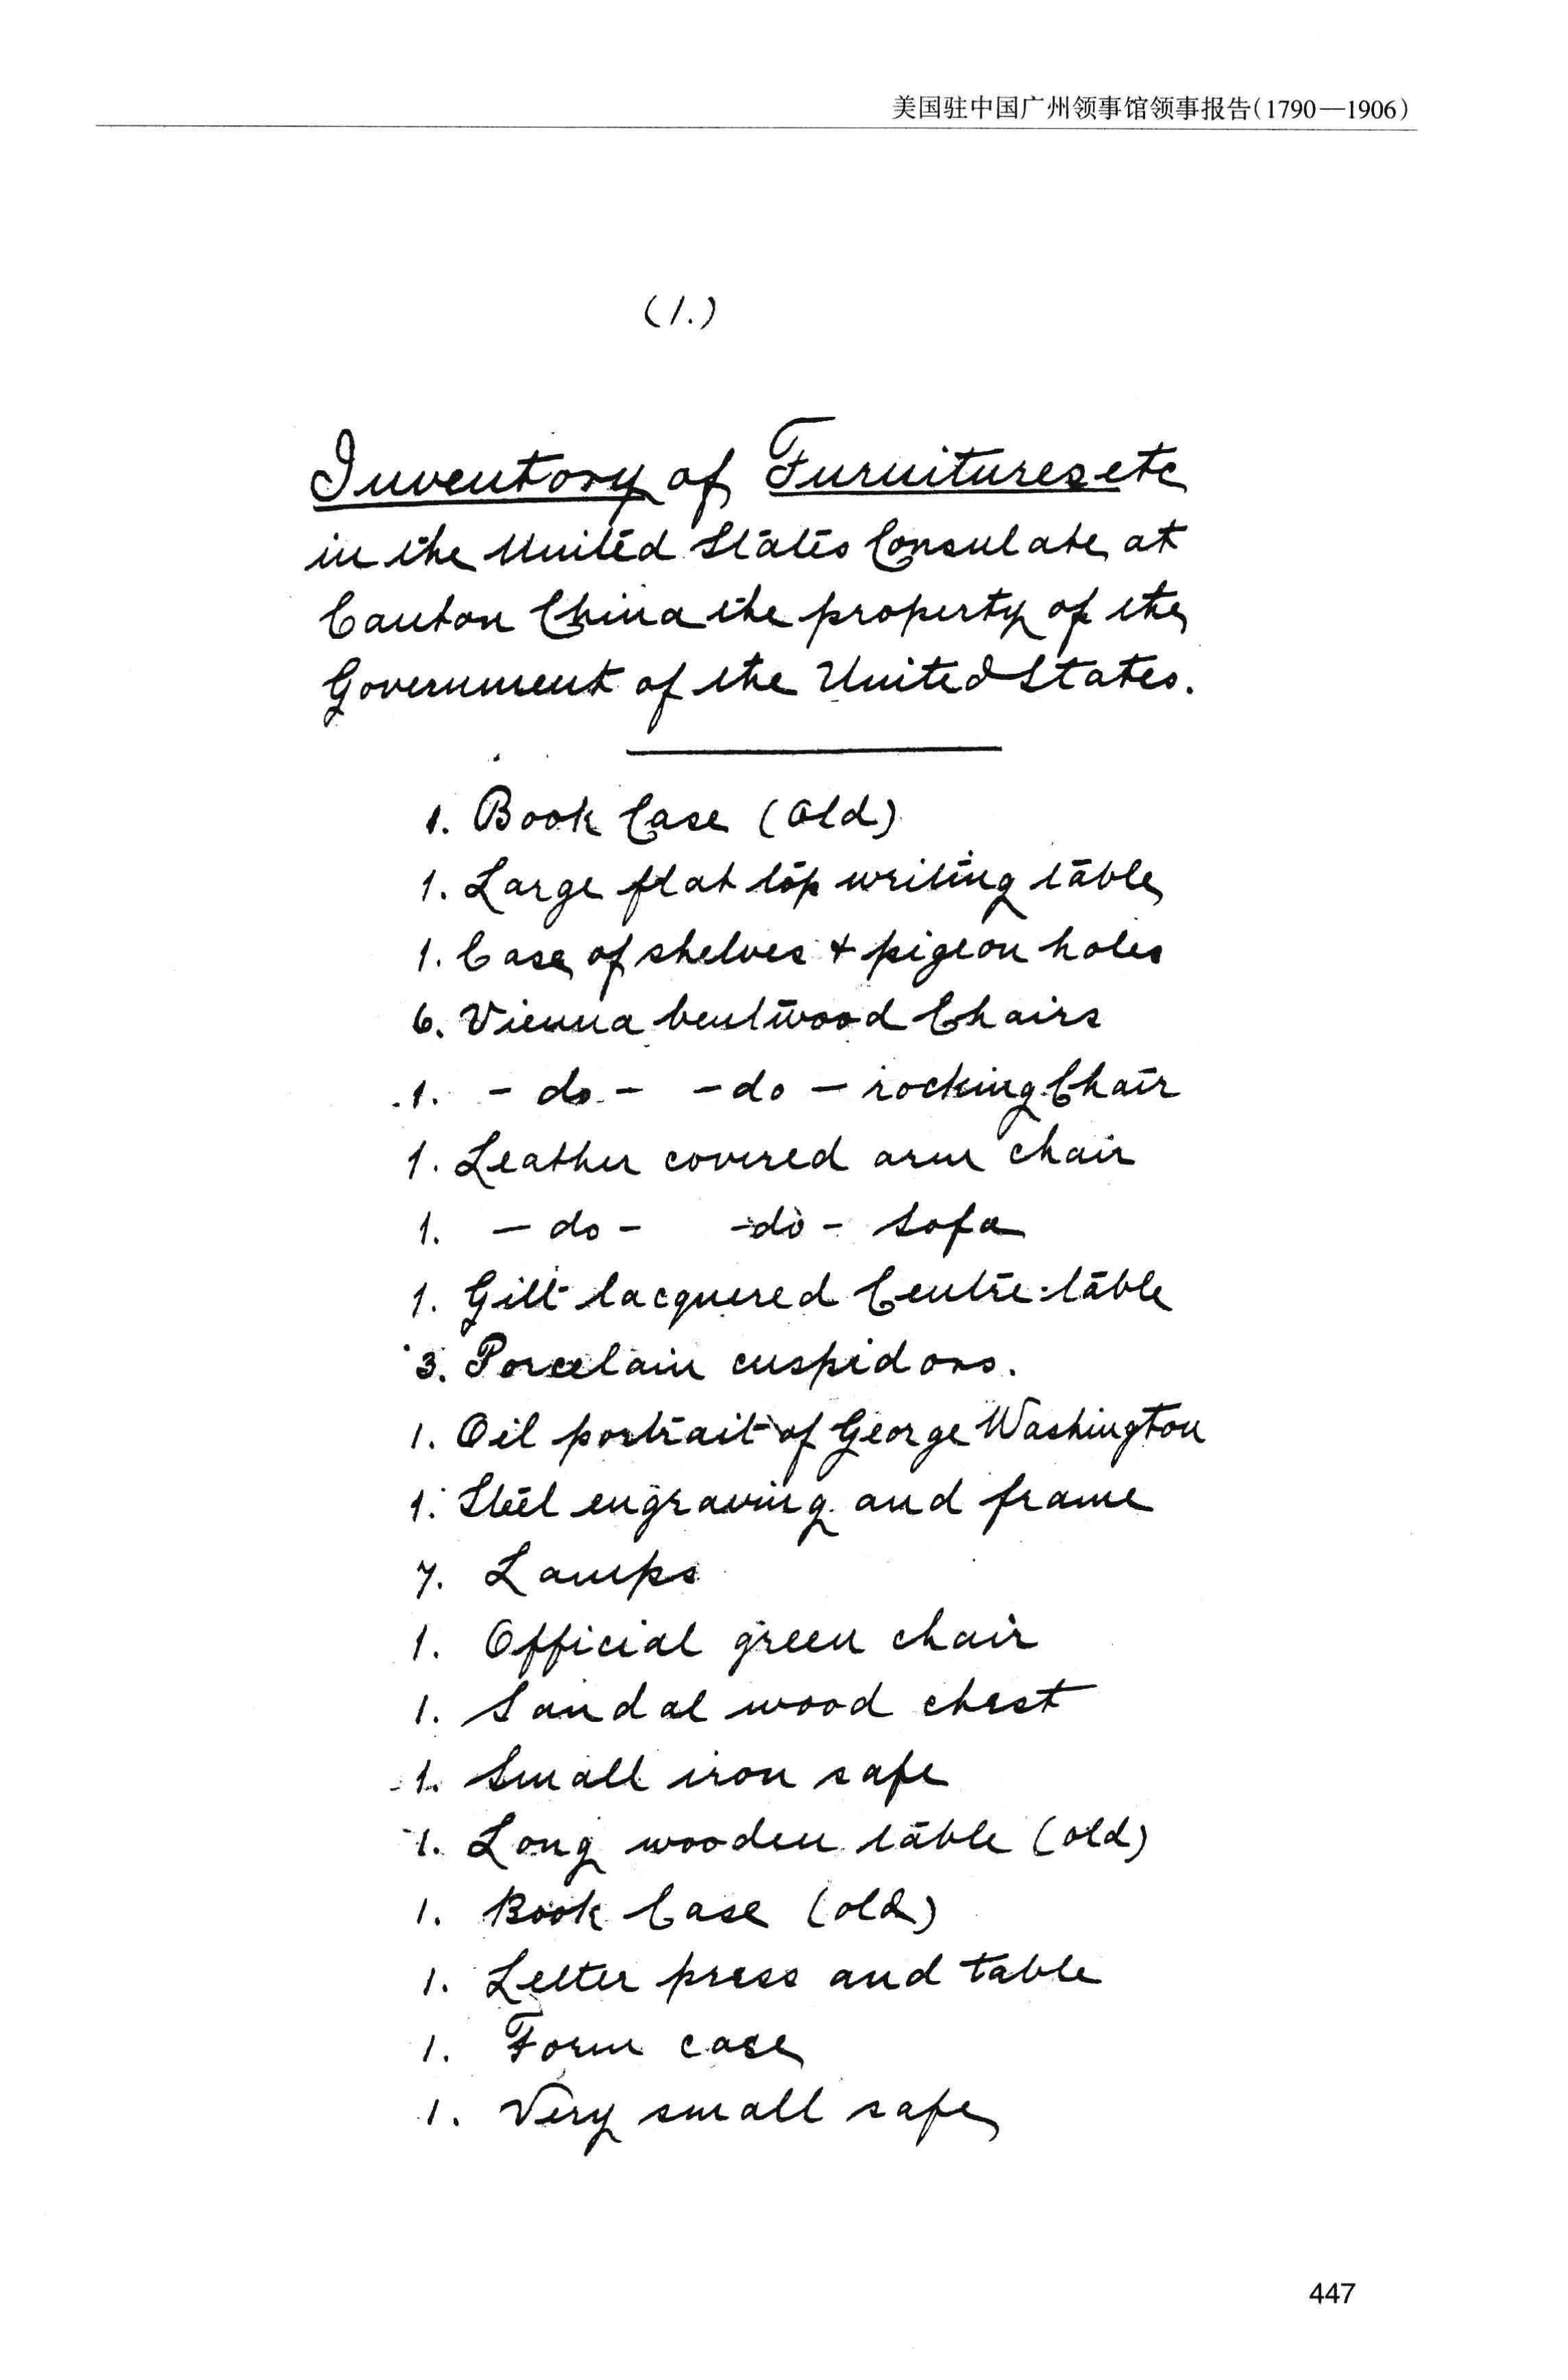 美国驻中国广州领事馆领事报告(1790—1906)
(1.)
Inventory of Furnitures etc
in the United States Consulate at
Canton China the property of the
Government of the United States.
1. Book Case (Old)
1. Large flat top writing table
1. Case of shelves + pigeon holes
6. Vienna bentwood Chairs
1. - do - - do - rocking Chair
1. Leather covered arm chair
1. - do - - do - Sofa
1. Gilt lacquered Centre-table
3. Porcelain cuspidors.
1. Oil portrait of George Washington
1. Steel engraving and frame
7. Lamps
1. Official green chair
1. Sandal wood chest
1. Small iron safe
1. Long wooden table (old)
1. Book Case (old)
1. Letter press and table
1. Form case
1. Very small safe
447